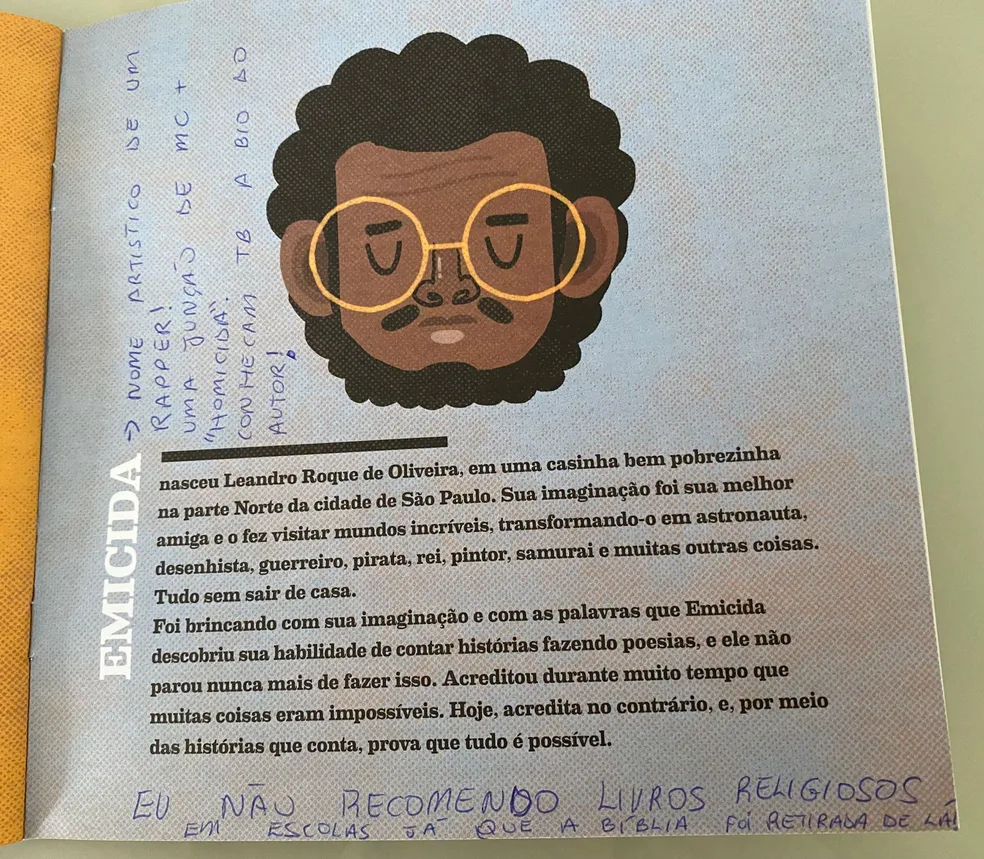 → NOME ARTISTICO DE UM
RAPPER!
UMA JUNÇÃO DE MC +
"HOMICIDA".
CONHEÇAM TB A BIO DO
AUTOR!
EMICIDA
nasceu Leandro Roque de Oliveira, em uma casinha bem pobrezinha
na parte Norte da cidade de São Paulo. Sua imaginação foi sua melhor
amiga e o fez visitar mundos incríveis, transformando-o em astronauta,
desenhista, guerreiro, pirata, rei, pintor, samurai e muitas outras coisas.
Tudo sem sair de casa.
Foi brincando com sua imaginação e com as palavras que Emicida
descobriu sua habilidade de contar histórias fazendo poesias, e ele não
parou nunca mais de fazer isso. Acreditou durante muito tempo que
muitas coisas eram impossíveis. Hoje, acredita no contrário, e, por meio
das histórias que conta, prova que tudo é possível.
EU NÃO RECOMENDO LIVROS RELIGIOSOS
EM ESCOLAS JÁ QUE A BÍBLIA FOI RETIRADA DE LÁ!